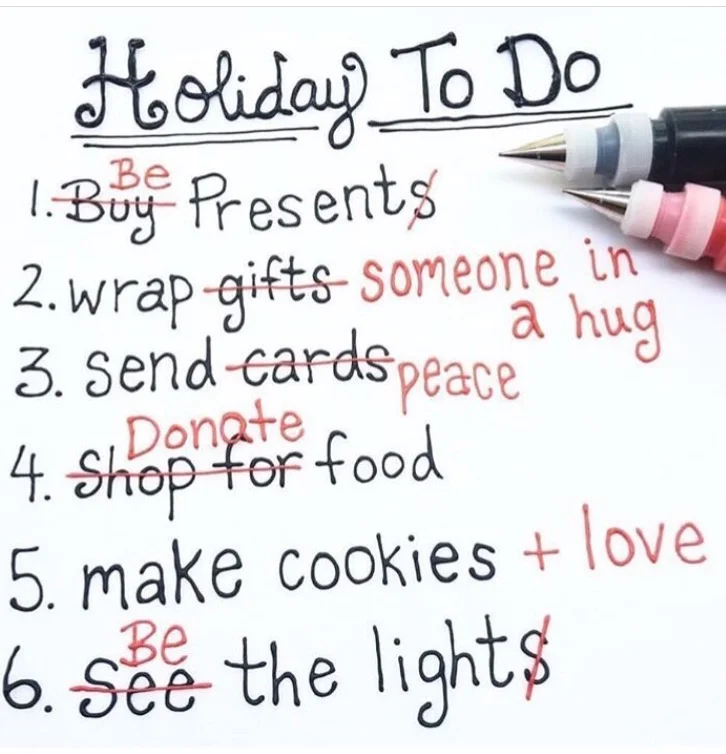 Holiday To Do
Be
1. Buy Presents
2. wrap gifts someone in
a hug
3. send cards peace
Donate
4. Shop for food
5. make cookies + love
Be
6. See the lights